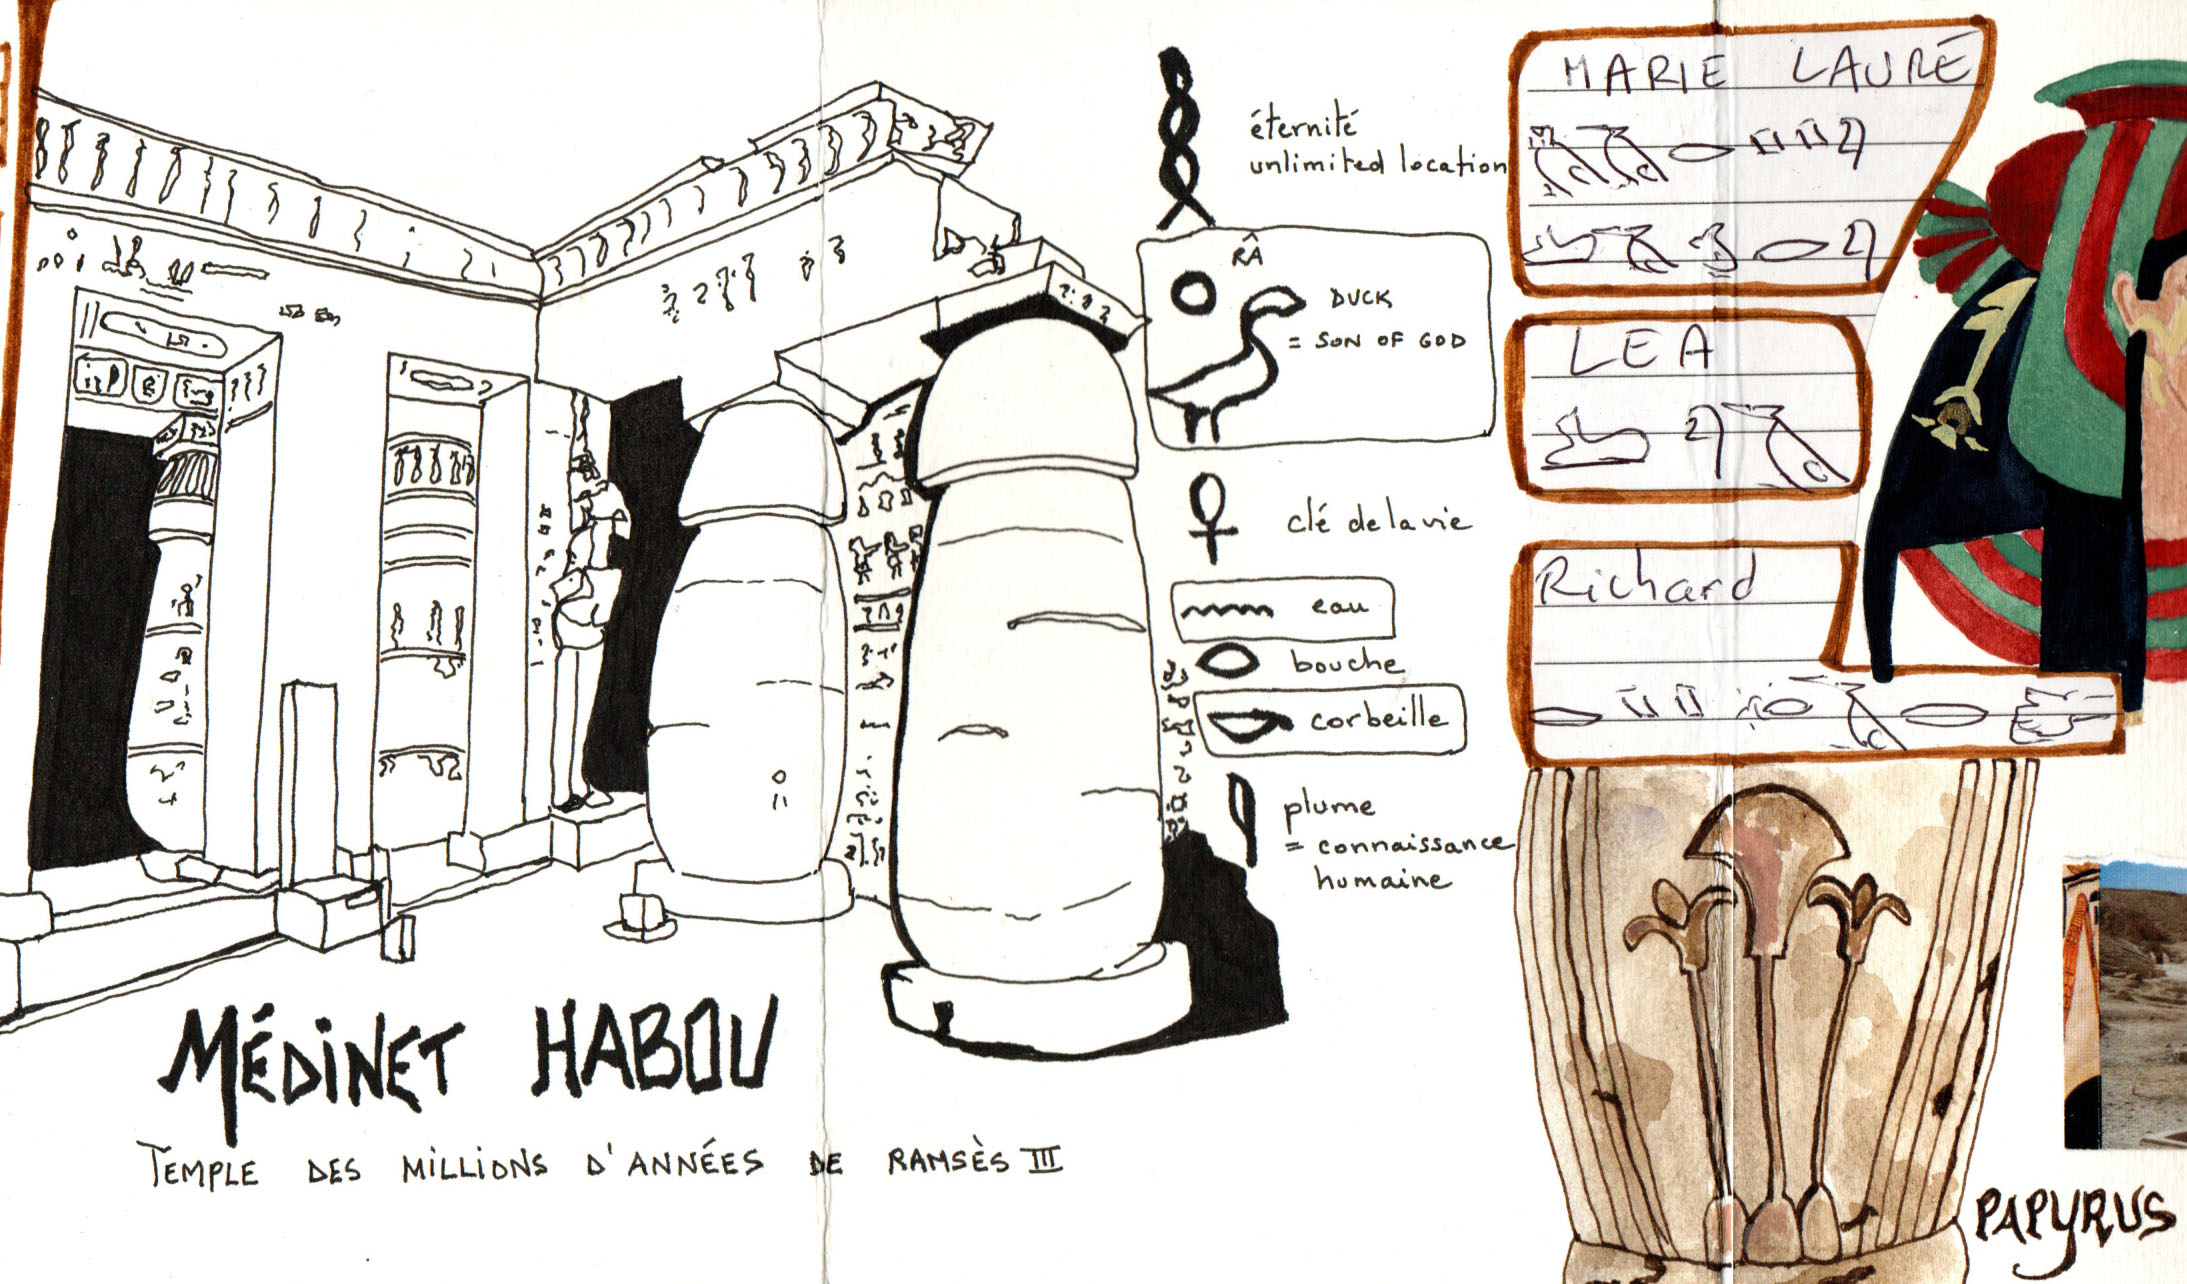 éternité
unlimited location
RÂ
DUCK
= SON OF GOD
clé de la vie
eau
bouche
corbeille
plume
= connaissance
humaine
MÉDINET HABOU
TEMPLE DES MILLIONS D'ANNÉES DE RAMSÈS III
MARIE LAURE
LEA
Richard
PAPYRUS